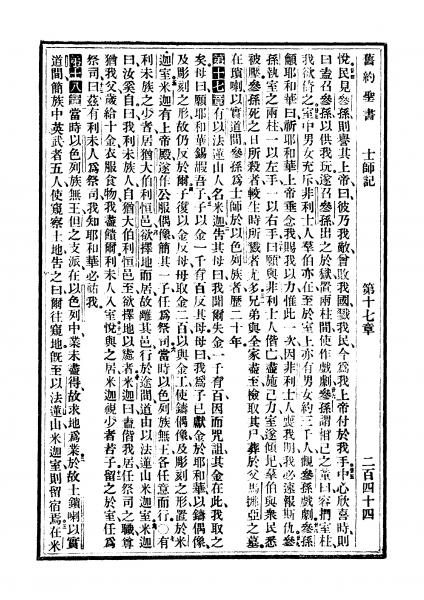 舊約聖書　士師記　第十七章　二百四十四
悅民見參孫則譽其上帝曰彼乃我敵曾敗我國戮我民今爲我上帝付於我手中心欣喜時則
曰盍召參孫以供我玩遂召參孫出之於獄置兩柱間使作戲劇參孫謂相己之童曰容捫室柱
我欲倚之室中男女充斥非利士人羣伯亦在至於室上亦有男女約三千人觀參孫戲劇參孫
籲耶和華曰祈耶和華上帝垂念我賜我以力惟此一次因非利士人喪我明我必速報斯仇參
孫執室之兩柱一以左手一以右手曰願與非利士人偕亡盡施己力室遂傾圮羣伯與衆民悉
被壓參孫死之日所殺者較生時所戮者尤多兄弟與全家盡至檢取其尸葬於父馬挪亞之墓
在瑣喇以實道間參孫爲士師於以色列族者歷二十年
第十七章 有以法蓮山人名米迦告其母曰我聞爾失金一千有百因而咒詛其金在此我取之
矣母曰願耶和華錫嘏吾子子以金一千有百反其母母曰我爲子已獻金於耶和華以鑄偶像
及彫刻之形故仍反於爾子復以金反母母取金二百以與金工使鑄偶像及彫刻之形置於米
迦室米迦有上帝殿遂作公服偶像簡其一子任爲祭司當時以色列族無王各任意而行○有
利未族之少者居猶大伯利恒邑欲擇地而居故離其邑行於途間道由以法蓮山米迦室米迦
曰汝奚自曰我利未族人自猶大伯利恒邑至欲擇地以處者米迦曰盍偕我居任祭司之職尊
猶我父歲給十金衣服食物我盡饋爾利未人入室悅與之居米迦視少者若子留之於室任爲
祭司曰茲有利未人爲祭司我知耶和華必祐我
第十八章 當時以色列族無王但之支派在以色列中業未盡得故求地爲業於故土瑣喇以實
道間簡族中英武者五人使窺察土地告之曰爾往窺地既至以法蓮山米迦室則留宿焉在米